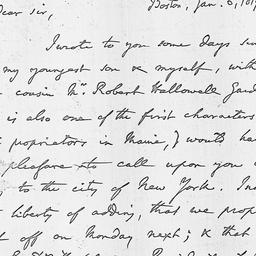 Dear Sir,
Boston, Jan. 6, 181
I wrote to you some days
my youngest son & myself, with
cousin Mr. Robert Hallowell Gard
is also one of the first characters
proprietors in Maine,) would ha
pleasure to call upon you
to the city of New York.
liberty of adding, that we prop
off on Monday next; & that